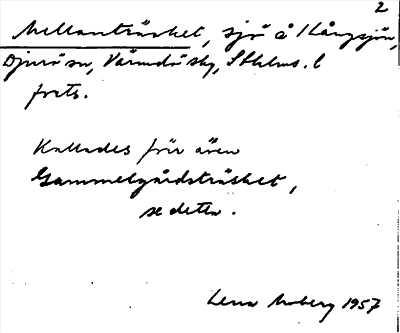 2
Mellanträsket, sjö å Långsjön,
Djurö sn, Värmdö skg, Sthlms. l
frats.
Kallades förr även
Gammelgårdsträsket,
se detta.
Lena Moberg 1957